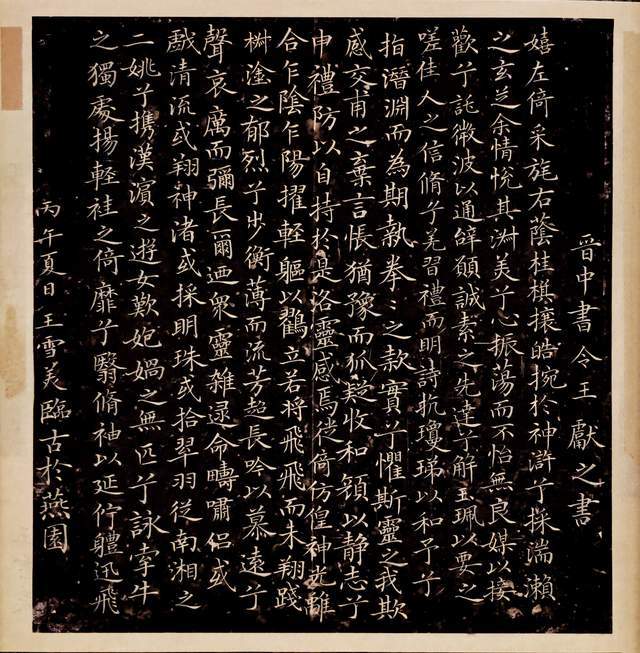 晉中書令王獻之書
嬉左倚采旄右蔭桂棋攘皓捥於神滸兮採湍瀨
之玄芝余情悅其淑美兮心振蕩而不怡無良媒以接
歡兮託微波以通辭願誠素之先達兮解玉珮以要之
嗟佳人之信脩兮羌習禮而明詩抗瓊珶以和予兮
指潛淵而為期執拳〻之款實兮懼斯靈之我欺
感交甫之棄言悵猶豫而狐疑收和顏以静志兮
申禮防以自持於是洛靈感焉徙倚仿偟神光離
合乍陰乍陽擢輕軀以鶴立若將飛飛而未翔踐
椒塗之郁烈兮步衡薄而流芳超長吟以慕遠兮
聲哀厲而彌長爾迺眾靈雜遝命疇嘯侶或
戲清流或翔神渚或採明珠或拾翠羽從南湘之
二姚兮攜漢濱之遊女歎妑媧之無匹兮詠牽牛
之獨處揚輕袿之倚靡兮翳脩袖以延佇軆迅飛
丙午夏日王雪美臨古於燕園